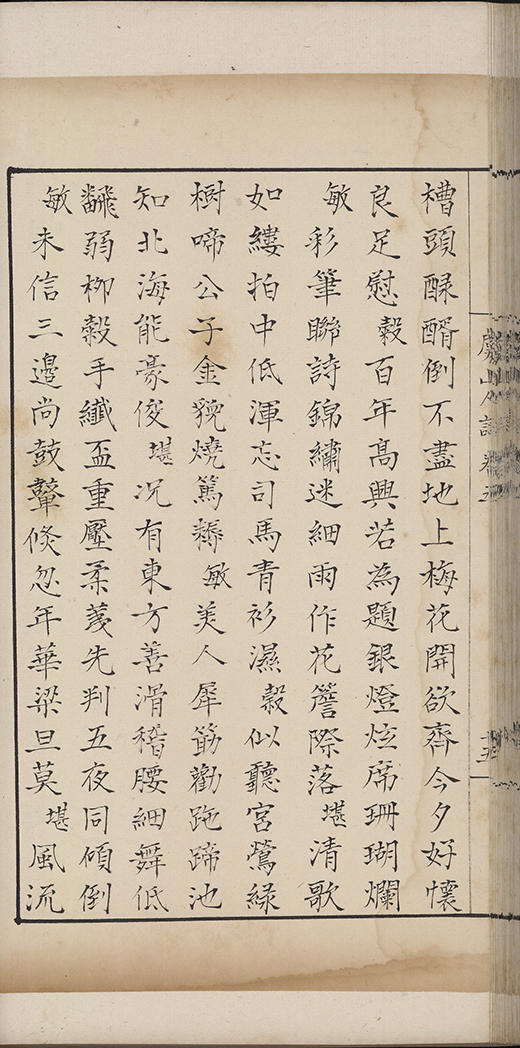 槽頭醁醑倒不盡地上梅花開欲齊今夕好懷
良足慰穀百年高興若為題銀燈炫席珊瑚爛
敏彩筆聯詩錦繡迷細雨作花簷際落堪清歌
如縷拍中低渾忘司馬青衫濕穀似聽宮鶯綠
樹啼公子金貌燒篤耨敏美人犀筯勸跑蹄池
知北海能豪俊堪况有東方善滑稽腰細舞低
翻弱柳穀手纖盃重壓柔荑先判五夜同傾倒
敏未信三邊尚鼓鼙倏忽年華梁旦莫堪風流